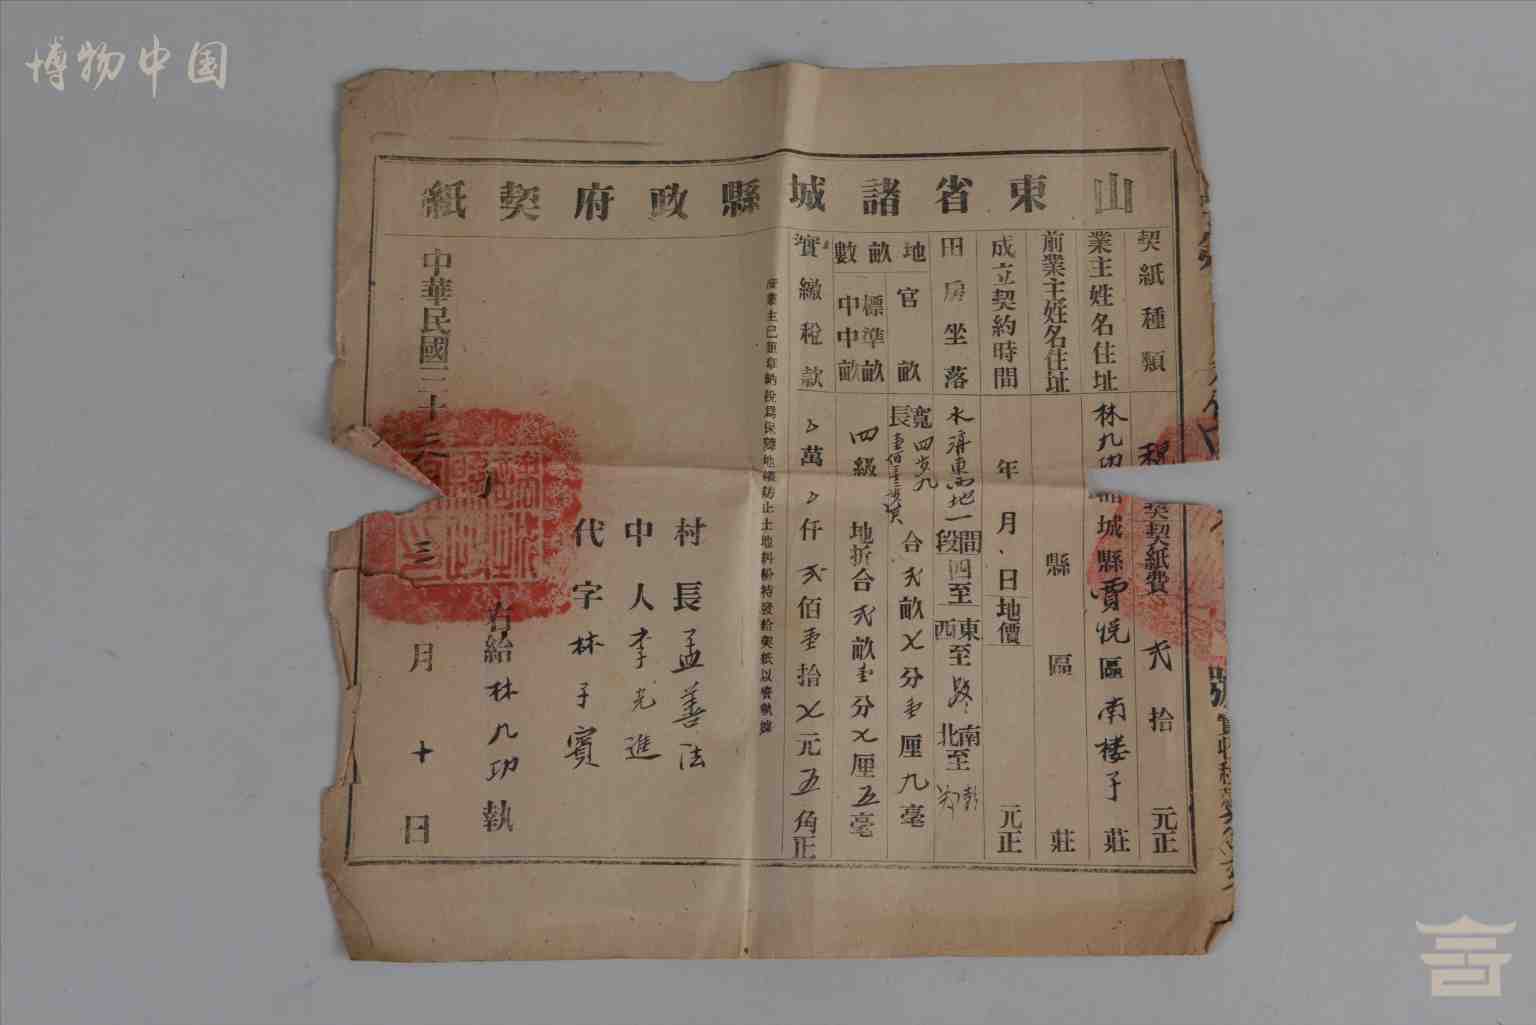 博物中国
山東省諸城縣政府契紙
契紙種類 契契紙費 弐拾 元正
業主姓名住址 林九功 諸城縣賈悦區南楼子莊
前業主姓名住址 縣 區 莊
成立契約時間 年 月 日 地價 元正
田房坐落 地一段間 四至 東西至 南北至
地畝數
官畝 長寬 合弐畝七分壹厘九毫
標準畝 中中畝 四級 地折合弐畝壹分七厘五毫
實繳稅款 萬 仟弐佰壹拾七元五角正
産業主已照章納稅爲保障地權防止土地糾紛特發給契紙以資執據
村長 孟善法
中人 李光進
代字 林子賓
右給 林九功 執
中華民國三十三年三月十日
號